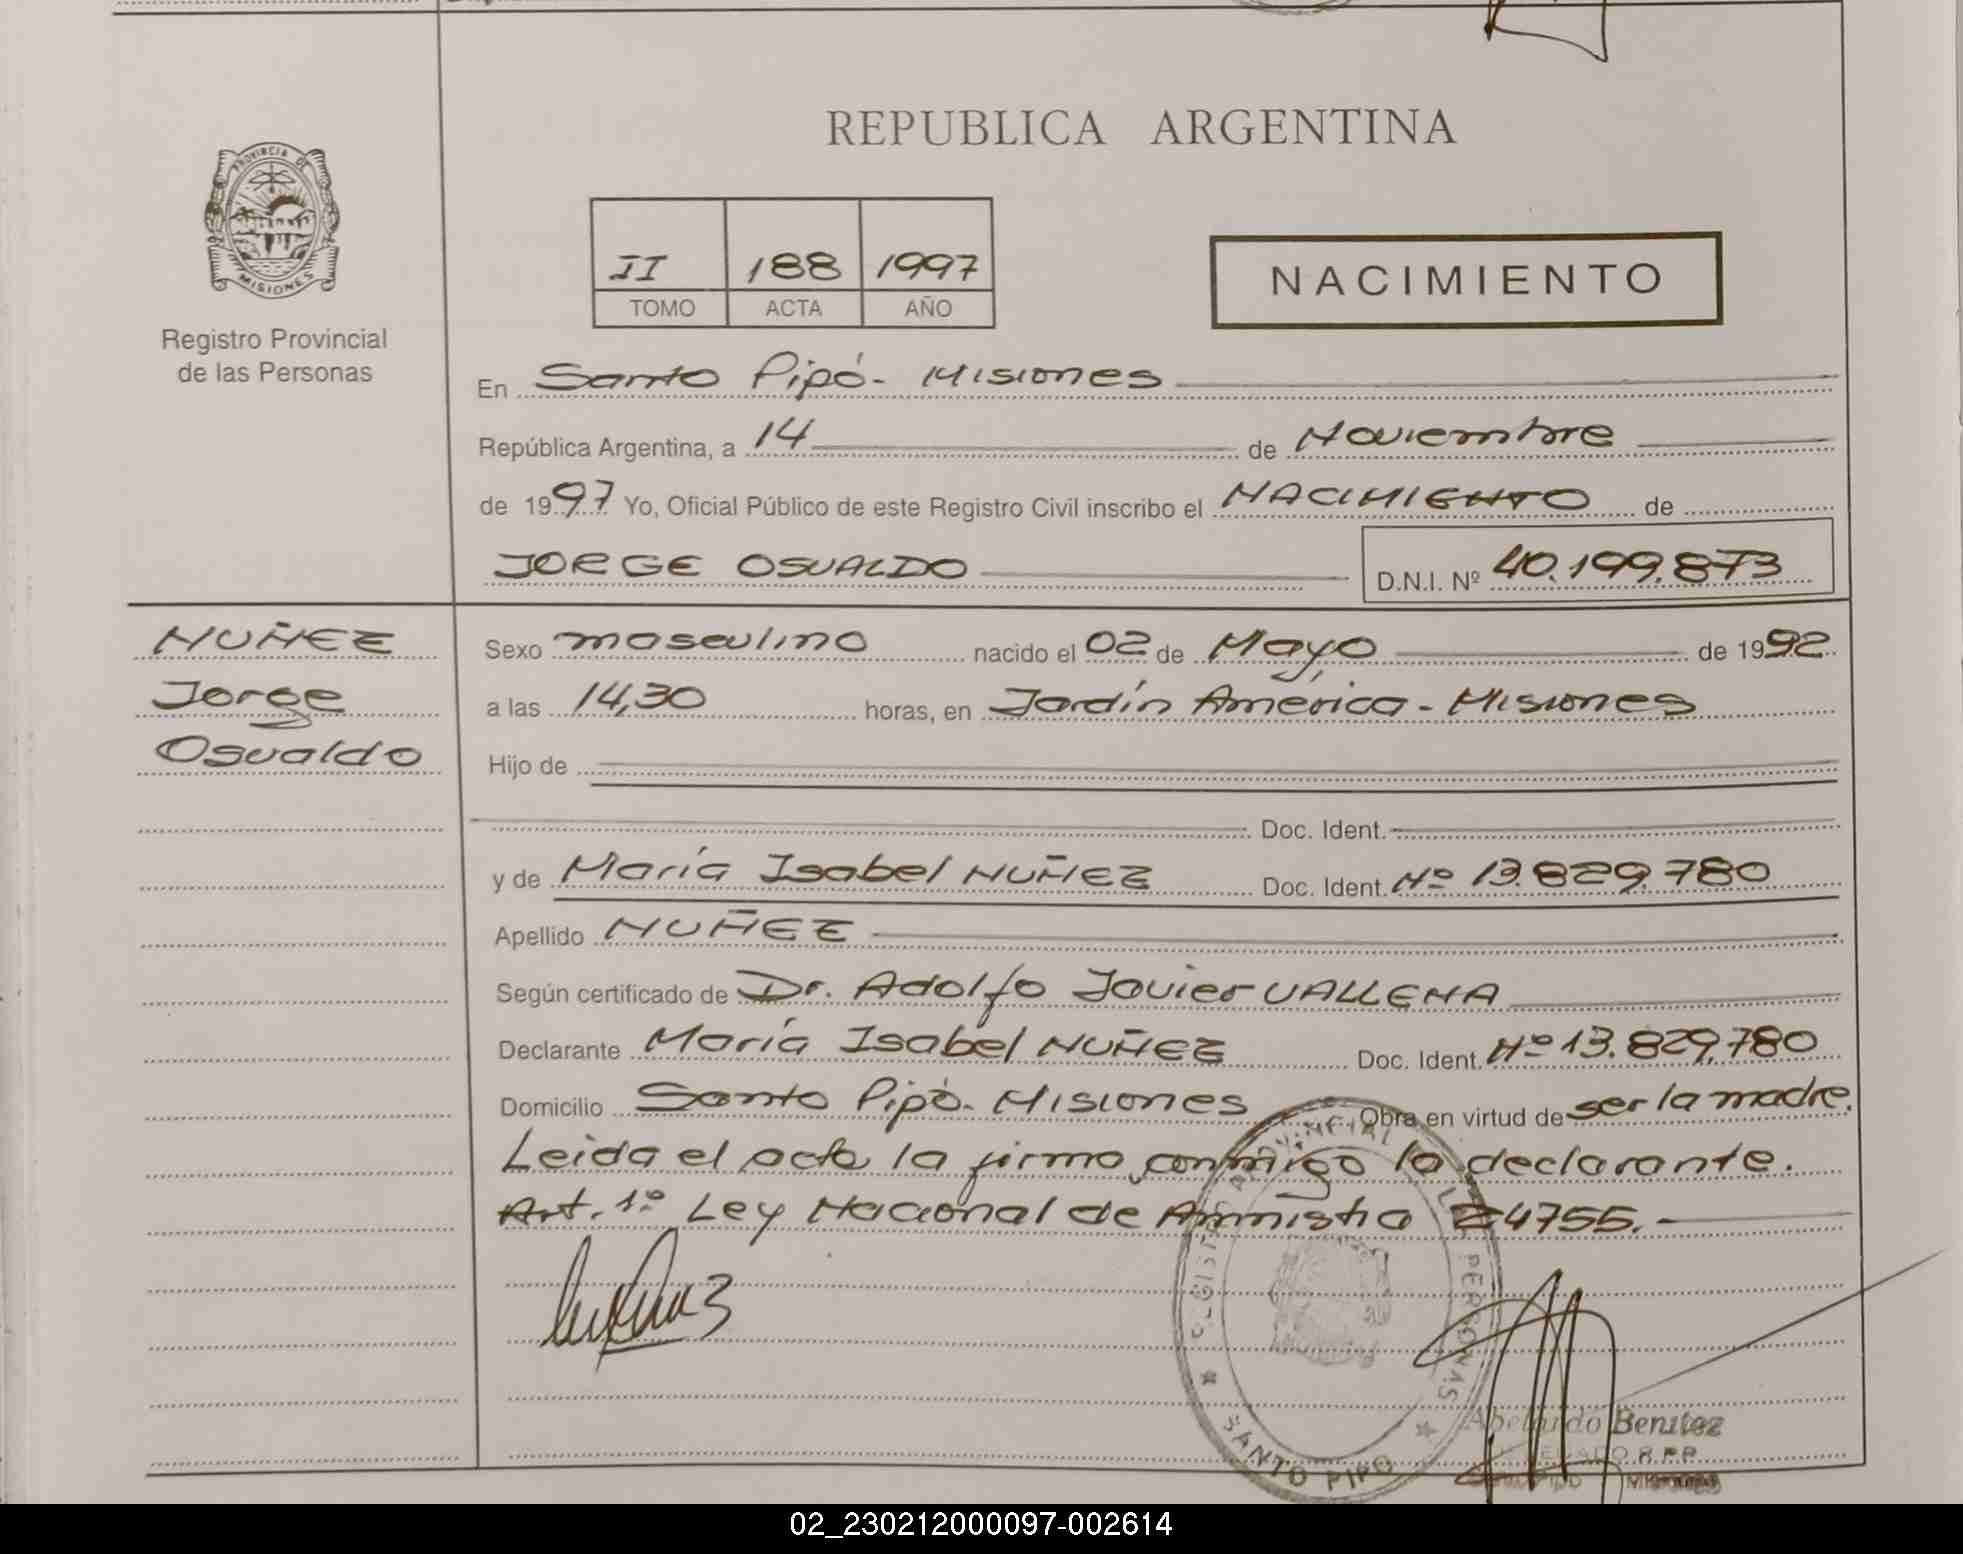 REPUBLICA ARGENTINA
PROVINCIA DE MISIONES
Registro Provincial
de las Personas
II 188 1997
TOMO ACTA AÑO
NACIMIENTO
En Santo Pipó - Misiones
República Argentina, a 14 de Noviembre
de 1997 Yo, Oficial Público de este Registro Civil inscribo el NACIMIENTO de
JORGE OSVALDO D.N.I. Nº 40.199.873
NUÑEZ
Jorge
Osvaldo
Sexo masculino nacido el 02 de Mayo de 1992
a las 14,30 horas, en Jardín America - Misiones
Hijo de
Doc. Ident.
y de María Isabel NUÑEZ Doc. Ident. Nº 13.829.780
Apellido NUÑEZ
Según certificado de Dr. Adolfo Javier VALLENA
Declarante María Isabel NUÑEZ Doc. Ident. Nº 13.829.780
Domicilio Santo Pipó - Misiones Obra en virtud de ser la madre.
Leida el acta la firma conmigo la declarante.
Art. 1º Ley Nacional de Amnistia 24755.-
PERSONAS
SANTO PIPO
Abelardo Benitez
R.P.P.
02_230212000097-002614